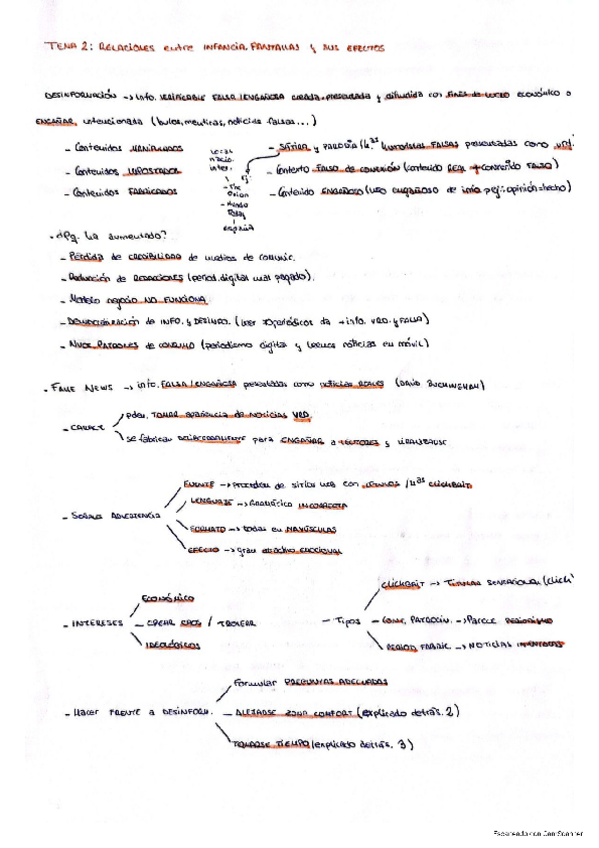 TEMA 2: RELACIONES entre INFANCIA, PANTALLAS y SUS EFECTOS
DESINFORMACIÓN → info. VERIFICABLE FALSA/ENGAÑOSA creada, presentada y difundida con FINES DE LUCRO económico o
ENGAÑAR, intencionada (bulos, mentiras, noticias falsas...)
- Contenidos MANIPULADOS
- Contenidos IMPOSTADOS
- Contenidos FABRICADOS
- SÁTIRA y PARODIA
FALSAS presentadas como vrd.
- Contexto FALSO de CONEXIÓN (contenido REAL + contenido FALSO)
- Contenido ENGAÑOSO (uso engañoso de info. pej: opinión = hecho)
- The
Onion
- Mundo
Today
España
- ¿Pq. ha aumentado?
- Pérdida de CREDIBILIDAD de medios de comunic.
- Reducción de REDACCIONES (period. digital mal pagado).
- Modelo negocio NO FUNCIONA.
- DEMOCRATIZACIÓN de INFO. y DESINFO. (leer periódicos da + info. VRD. y FALSA)
- NUEV. PATRONES de CONSUMO (periodismo digital y leemos noticias en móvil)
- FAKE NEWS → info. FALSA/ENGAÑOSA presentadas como noticias REALES (DAVID BUCKINGHAM)
- CARACT.
pden. TOMAR apariencia de NOTICIAS VRD.
se fabrican DELIBERADAMENTE para ENGAÑAR a LECTORES y VIRALIZARSE
- SEÑALES ADVERTENCIA
FUENTE → proceden de sitios web con CLICKBAIT
LENGUAJE → GRAMÁTICA INCORRECTA
FORMATO → todas en MAYÚSCULAS
EFECTO → gran atractivo EMOCIONAL
- INTERESES
ECONÓMICO
CREAR CAOS / TROLEAR
IDEOLÓGICOS
- Tipos
CLICKBAIT → TITULAR SENSACIONAL (click)
CONT. PATROCIN. → PARECE PERIODISMO
PERIOD. FABRIC. → NOTICIAS INVENTADAS
- HACER FRENTE a DESINFORM.
Formular PREGUNTAS ADECUADAS
ALEJARSE ZONA CONFORT (explicado detrás. 2)
TOMARSE TIEMPO (explicado detrás. 3)
Escaneado con CamScanner